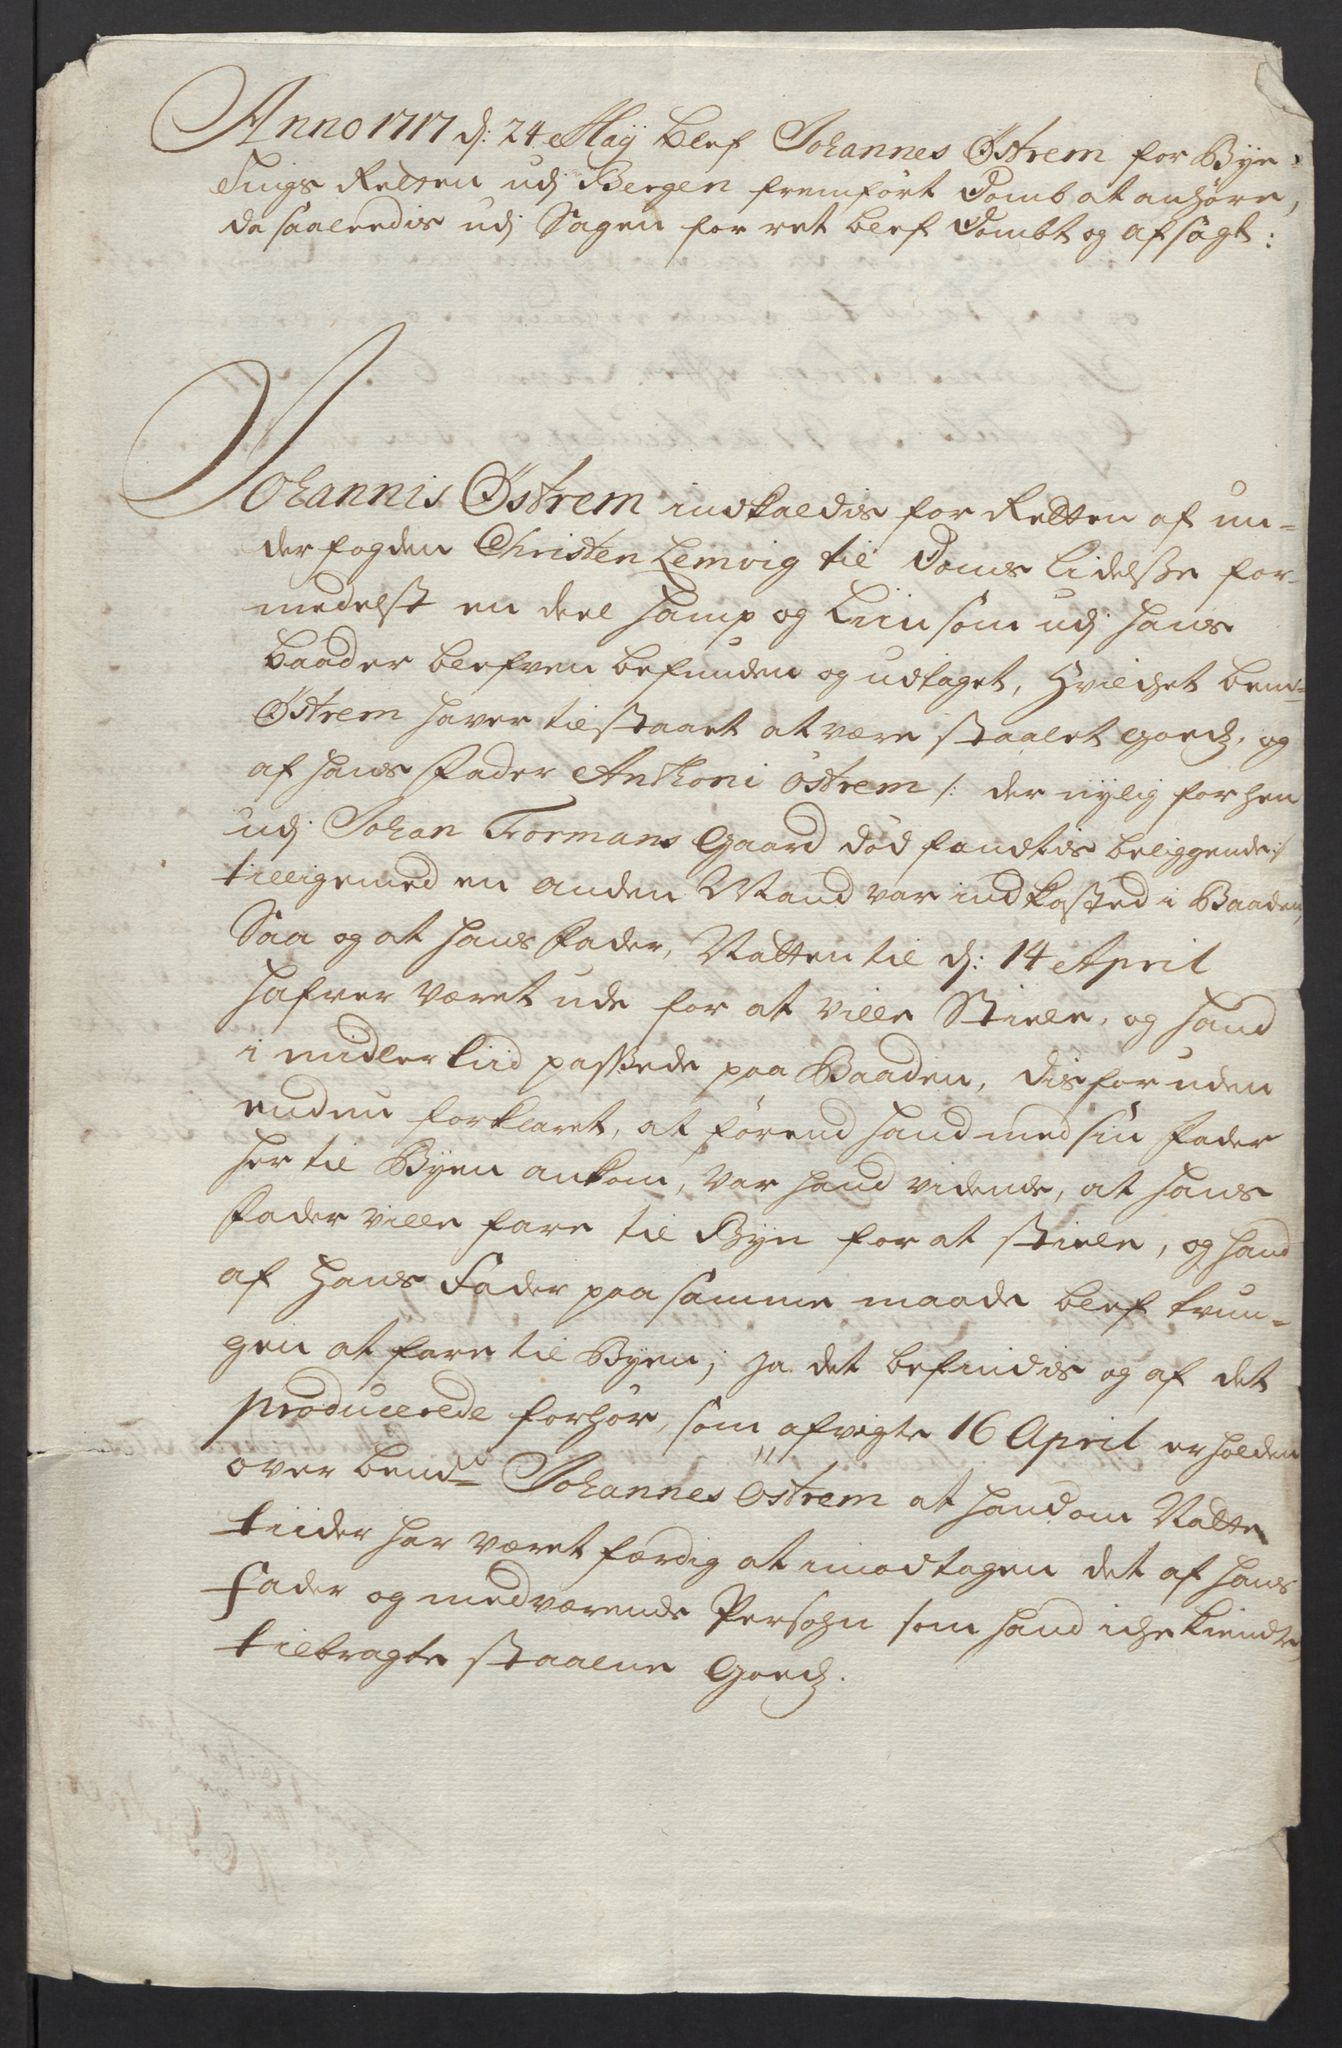 Anno 1717 d: 24 Maij blef Johannes Østrem for Bye
Tings Retten udj Bergen fremført Domb at anhøre,
da saaleedis udj Sagen for ret blef Dombt og afsagt:
Johannis Østrem indkaldis for Retten af un-
derfogden Christen Lemvig til Doms lidelsse for-
medelst en deel hamp og Liin som udj hans
baader blefven befunden og udtaget, hvilchet bem-
Østrem haver tilstaaet at være staalet goedz, og
af hans Fader Anthoni Østrem /: der nylig forhen
udj Johan Trormans Gaard død fandtis beliggende :/
tilligemed en anden Mand var indkasted i Baaden,
Saa og at hans Fader, Natten til d: 14 April
hafver været ude for at ville Stiele, og hand
imidlertiid passede paa Baaden, disforuden
endnu forklaret, at førend hand med sin Fader
her til Byen ankom, var hand vidende, at hans
Fader ville fare til Byn for at stiele, og hand
af hans Fader paa samme maade blef tvun-
gen at fare til Byen; ja det befindis og af det
producerede forhør, som afvigte 16 April er holden
over bemd. Johannes Østrem at hand om Natte
tiider har været færdig at imodtagen det af hans
Fader og medværende Persohn som hand iche kiendte,
tilbragte staalne Goedz.